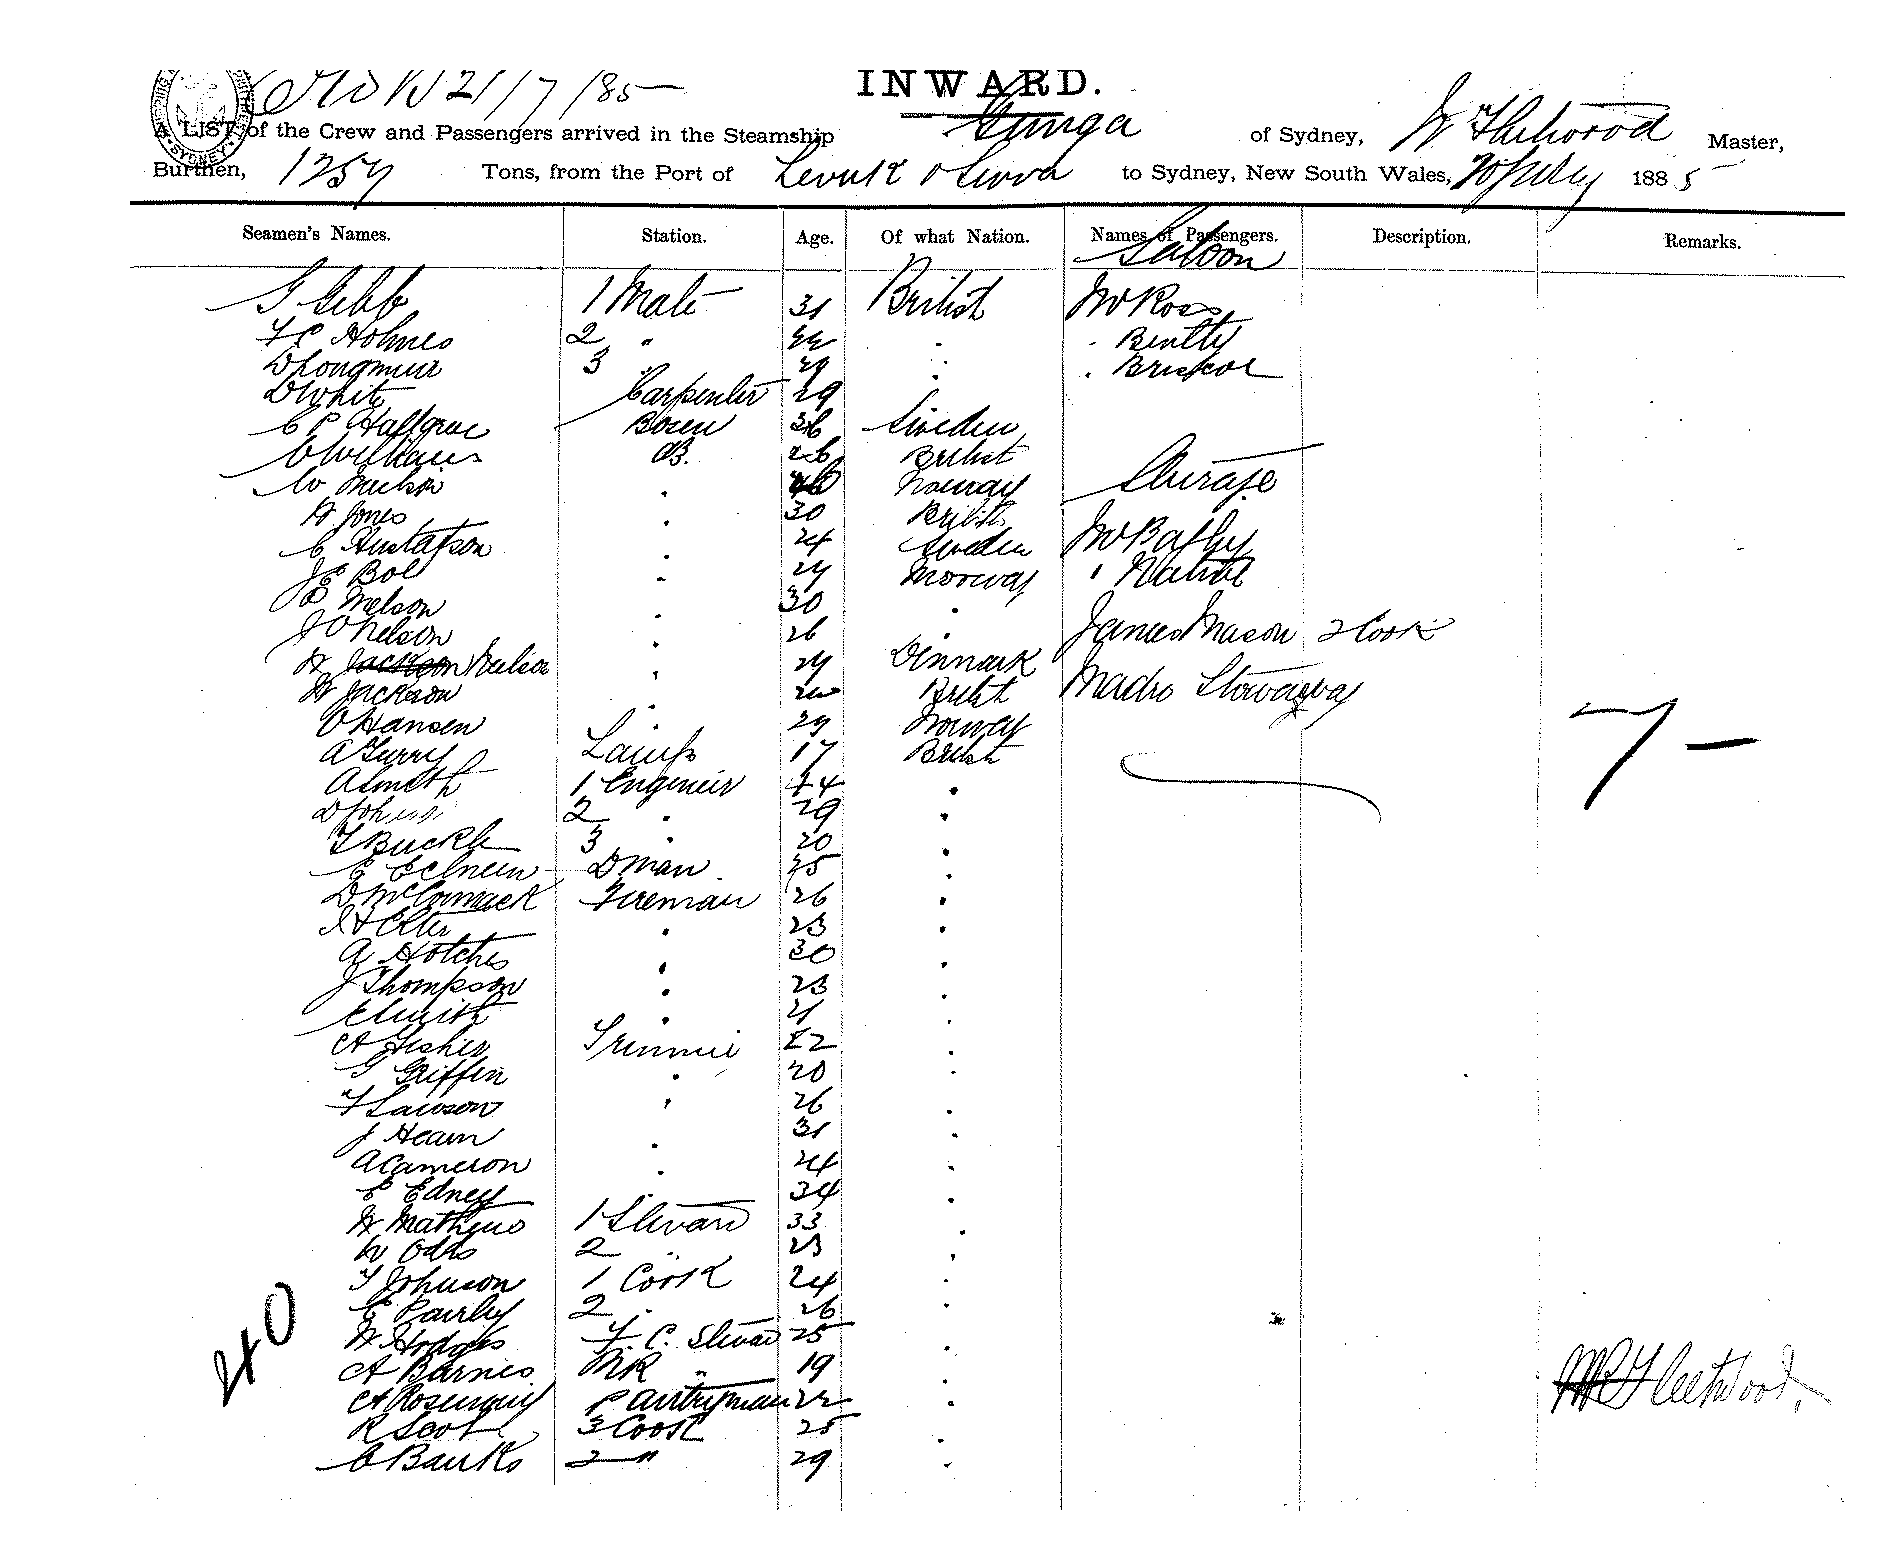 21/7/85
INWARD.
A LIST of the Crew and Passengers arrived in the Steamship Gunga of Sydney, W Fleetwood Master,
Burthen, 1257 Tons, from the Port of Levuk & Suva to Sydney, New South Wales, 20 July 1885
Seamen's Names. Station. Age. Of what Nation. Names of Passengers. Description. Remarks.
Saloon
G Gibb 1 Mate 31 British Mr Ross
F C Holmes 2 " 22 . Beatty
D Longmuir 3 . 29 . Briscoe
D White Carpenter 29
C P Hallgrove Bosen 36 Sweden
C Williams AB. 26 British
W Neilson . Norway Steerage
H Jones . 30 British
C Gustafson . 24 Sweden Mr Bayly
J E Boe . 27 Norway " Native
P Nelson . 30 .
J O Nelson . 26 . James Mason 2 Cook
H Jackson Neilson . 27 Denmark
H Jackson . British Madro Stowaway
O Hansen . 29 Norway
A Gurry Lamps 17 British
A Smith 1 Engineer 44 . 7 —
D 2 . 29 .
T Buckle 3 . 20 .
E D man 35 .
D McCormack Fireman 26 .
. 23 .
A Hotches . 30 .
J Thompson . 23 .
E Smith . 21 .
A Fisher Trimmer 22 .
G Griffin . 20 .
F Lawson . 26 .
J Hearn . 31 .
A Cameron . 24 .
E Edney . 34 .
H Mathews 1 Steward 33 .
W Odds 2 . 23 .
T Johnson 1 Cook 24 .
E Pairby 2 . 26 .
H Hodges F. C. Steward 25 .
A Barnes MR " 19 .
A Rosenguy Pantryman 22 .
R Scot 3 Cook 25 .
C Banks 2 " 29 .
40
Fleetwood.
SYDNEY